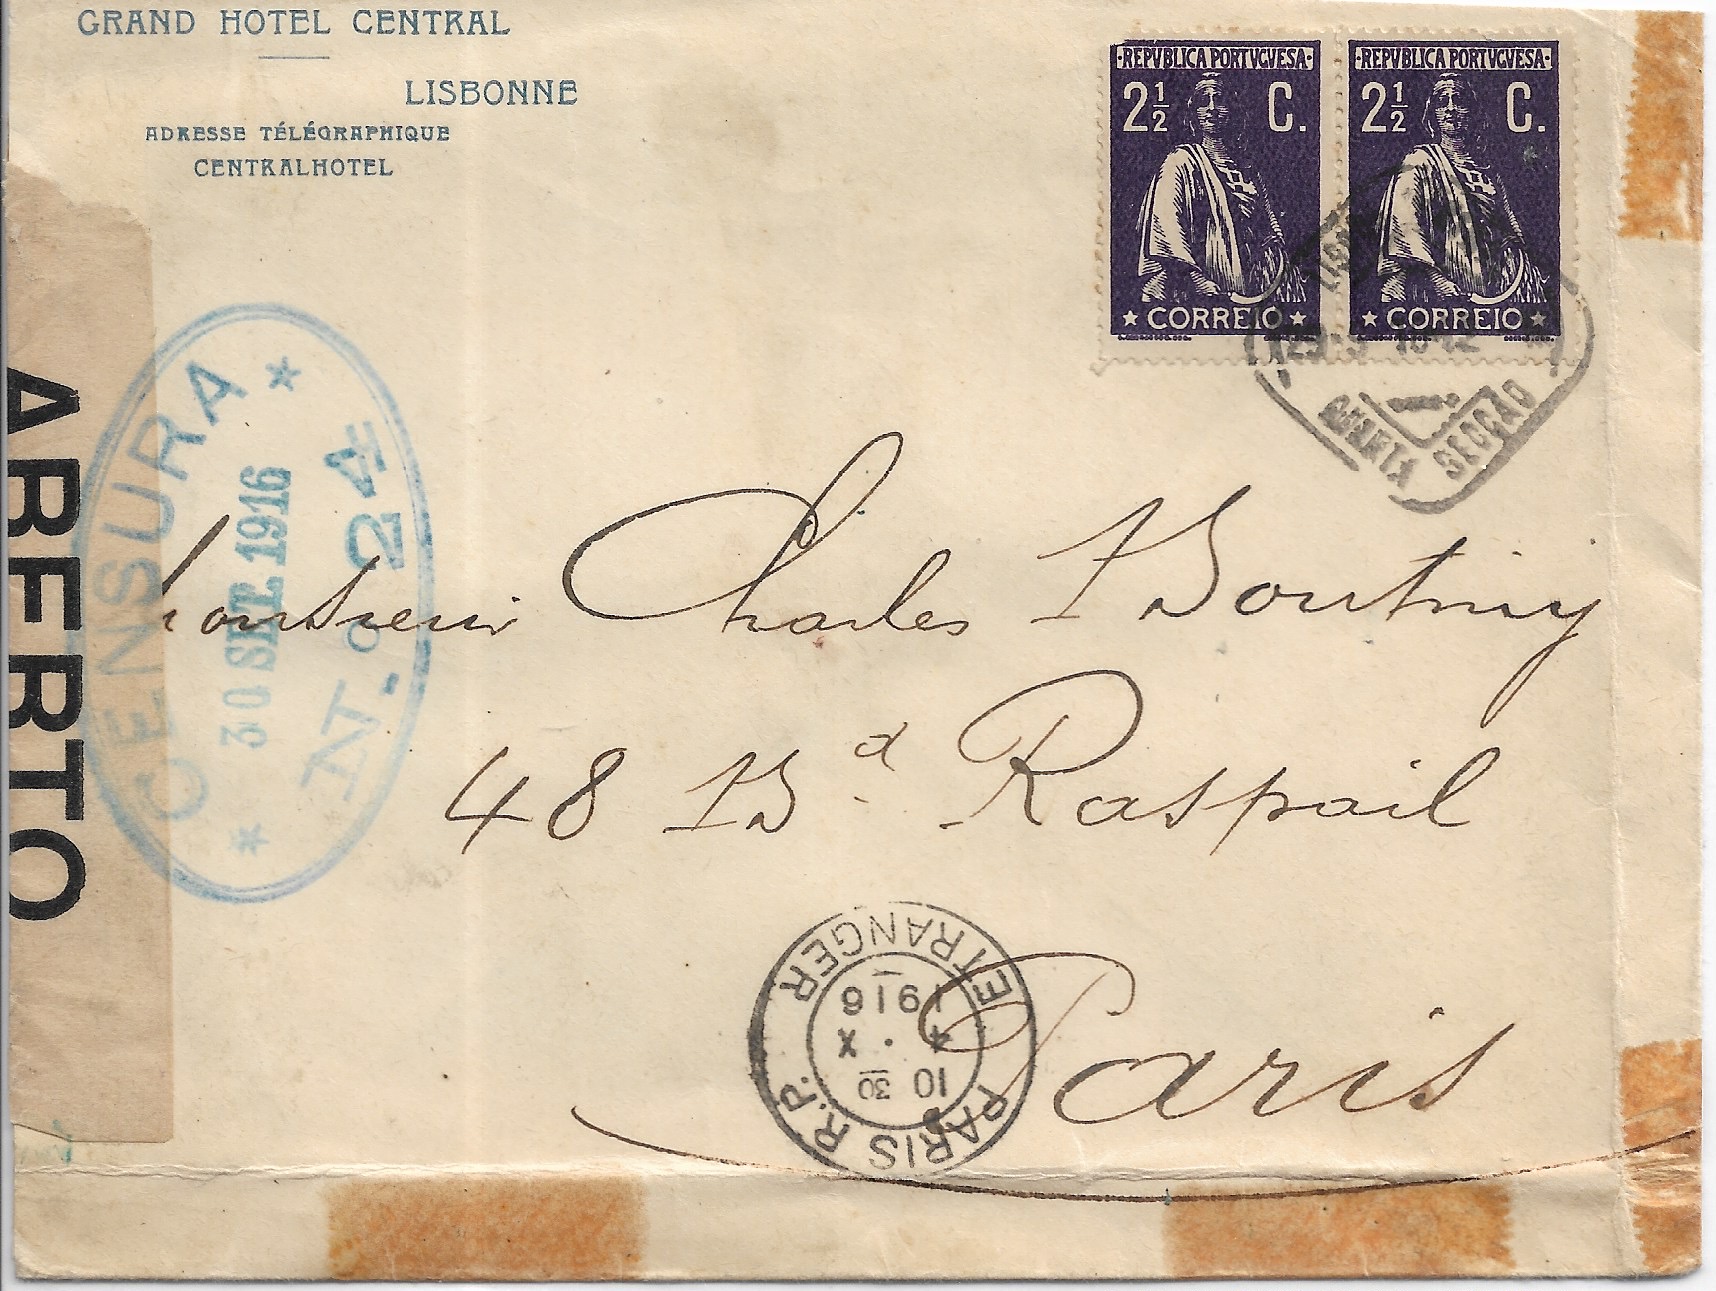 GRAND HOTEL CENTRAL
LISBONNE
ADRESSE TÉLÉGRAPHIQUE
CENTRALHOTEL
·REPVBLICA PORTVGVESA·
2½ C.
★ CORREIO ★
·REPVBLICA PORTVGVESA·
2½ C.
★ CORREIO ★
QUARTA SECÇÃO
ABERTO
CENSURA
30 SET. 1916
N.º 24
Monsieur Charles Boutmy
48 Bd. Raspail
Paris
PARIS R.P.
ETRANGER
10 30
4 · X
1916